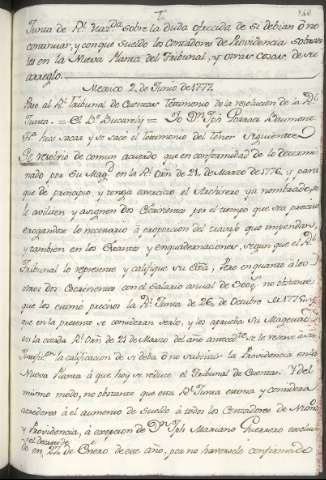 Junta de Rl. Haz.da sobre la duda ofrecida de si debian ô no
continuar, y con que sueldo los Contadores de Providencia sobresa
les en la Nueva Planta del Tribunal, y otras cosas, de su
arreglo.
Mexico 2. de Junio de 1777.
Pase al Rl. Tribunal de Cuentas Testimonio de la resolucion de la Rl.
Junta. = El Bo. Bucarely = Yo Dn. Jph
Hize sacar y se sacó el testimonio del tenor siguiente
Se resolvio de comun acuerdo que en conformidad de lo determi
nado por Su Magd. en la Rl. Orn de 21. de Marzo de 1776, y para
que de principio, y tenga exercicio el Archivero ya nombrado, se
le auxilien y asignen dos Escrivientes por el tiempo que sea preciso
erogandose lo necesario á proporcion del travajo que impendan,
y tambien en los Estantes y enquadernaciones, segun que el Rl.
Tribunal lo represente y califique Su Exâ., Pero en quanto á los
otros dos Escrivientes con el salario anual de no obstante
que los estimó precisos la Rl. Junta de 26. de Octubre de 1776,
que en la presente se consideran serlo, y los aprueba Su Magestad
en la citada Rl. Orn de 21 de Marzo del año anteced.te se le reserva á su
la calificacion de si deba, ô no subsistir la Providencia en la
Nueva Planta á que hoy se reduce el Tribunal de Cuentas. Y del
mismo modo, no obstante que esta Rl. Junta estima y considera
acredores á el aumento de Sueldo á todos los Contadores de
y Providencia, á excepcion de Dn. Jph Mariano Guerrero
el decreto de
do en 22 de Enero de este año, por no haversele confirmado